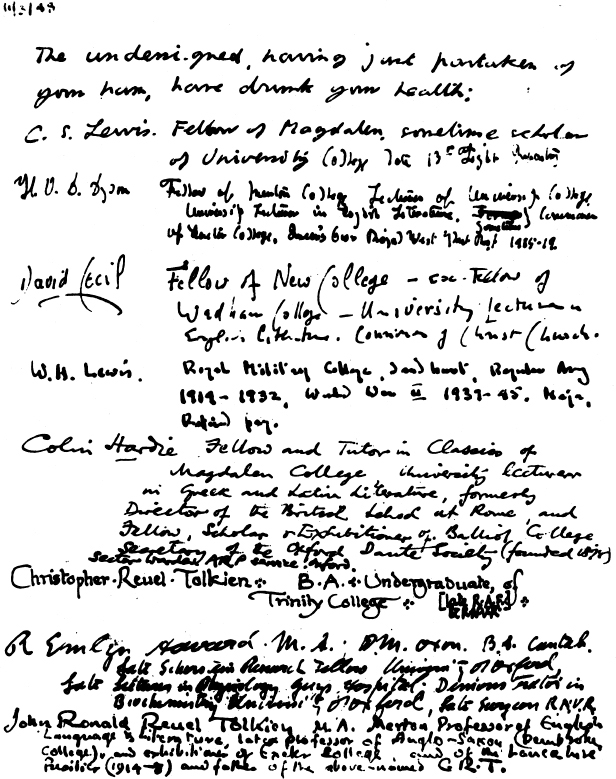 11/3/48
The undersigned, having just partaken of
your ham, have drunk your health;
C. S. Lewis. Fellow of Magdalen, sometime scholar
of University College late 13th Light Infantry
H. V. D. Dyson Fellow of Merton College Lecturer of University College
University Lecturer in English Literature, sometime Commoner
of Exeter College, Queen's Own Royal West Kent Regt 1915-19.
David Cecil Fellow of New College – ex-Fellow of
Wadham College – University lecturer in
English Literature. Commoner of Christ Church.
W.H. Lewis. Royal Military College, Sandhurst, Regular Army
1914-1932, World War II 1939-45. Major,
Retired pay.
Colin Hardie Fellow and Tutor in Classics of
Magdalen College University lecturer
in Greek and Latin Literature, formerly
Director of the British School at Rome, and
Fellow, Scholar & Exhibitioner of Balliol College
Secretary of the Oxford Dante Society (founded 1876)
Sector warden ARP service Oxford.
Christopher Reuel Tolkien B.A. Undergraduate, of
Trinity College [late R.A.F.]
R Emlyn Havard. M.A. D.M. Oxon. B.A. Cantab.
Late Research Fellow University of Oxford,
late in Physiology Guys Hospital. Tutor in
Biochemistry University of Oxford, late Surgeon R.N.V.R.
John Ronald Reuel Tolkien M.A. Merton Professor of English
Language & Literature, late professor of Anglo-Saxon (Pembroke
College), and exhibitioner of Exeter College and of the Lancashire
Fusiliers (1914-8) and father of the above-named C.R.T.